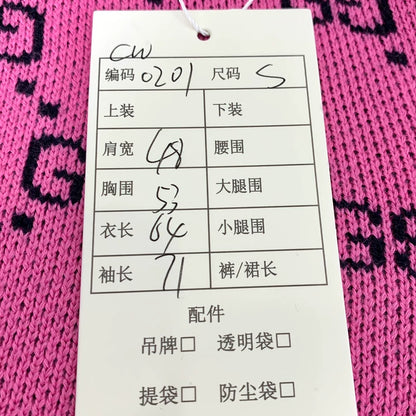 CW
编码 0201 尺码 S
上装 下装
肩宽 48 腰围
胸围 53 大腿围
衣长 64 小腿围
袖长 71 裤/裙长
配件
吊牌□ 透明袋□
提袋□ 防尘袋□